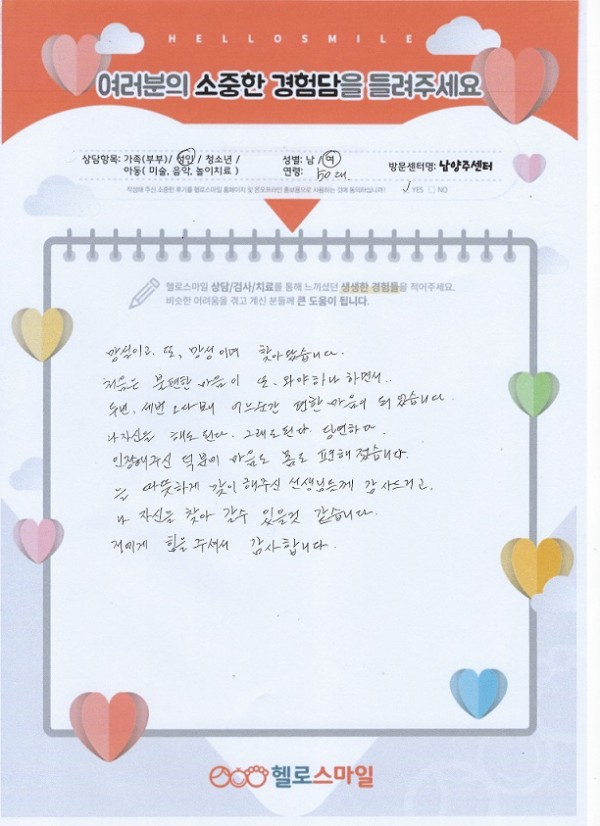 HELLOSMILE
여러분의 소중한 경험담을 들려주세요
상담항목: 가족(부부)/ 성인 / 청소년 /
아동( 미술, 음악, 놀이치료 )
성별: 남 / 여
연령: 50대.
방문센터명: 남양주센터
작성해 주신 소중한 후기를 헬로스마일 홈페이지 및 온오프라인 홍보용으로 사용하는 것에 동의하십니까? ✓ YES □ NO
헬로스마일 상담/검사/치료를 통해 느끼셨던 생생한 경험들을 적어주세요.
비슷한 어려움을 겪고 계신 분들께 큰 도움이 됩니다.
망설이고, 또, 망설이며 찾아왔습니다.
처음은 불편한 마음이 또, 와야하나 하면서..
두번, 세번 오다보니 어느순간 편한 마음이 되었습니다.
나자신을 해도된다. 그래도된다. 당연하다.
인정해주신 덕분에 마음도 몸도 편해졌습니다.
늘 따뜻하게 같이 해주신 선생님들께 감사드리고,
나 자신을 찾아 갈수 있을것 같습니다.
저에게 힘을 주셔서 감사합니다.
헬로스마일